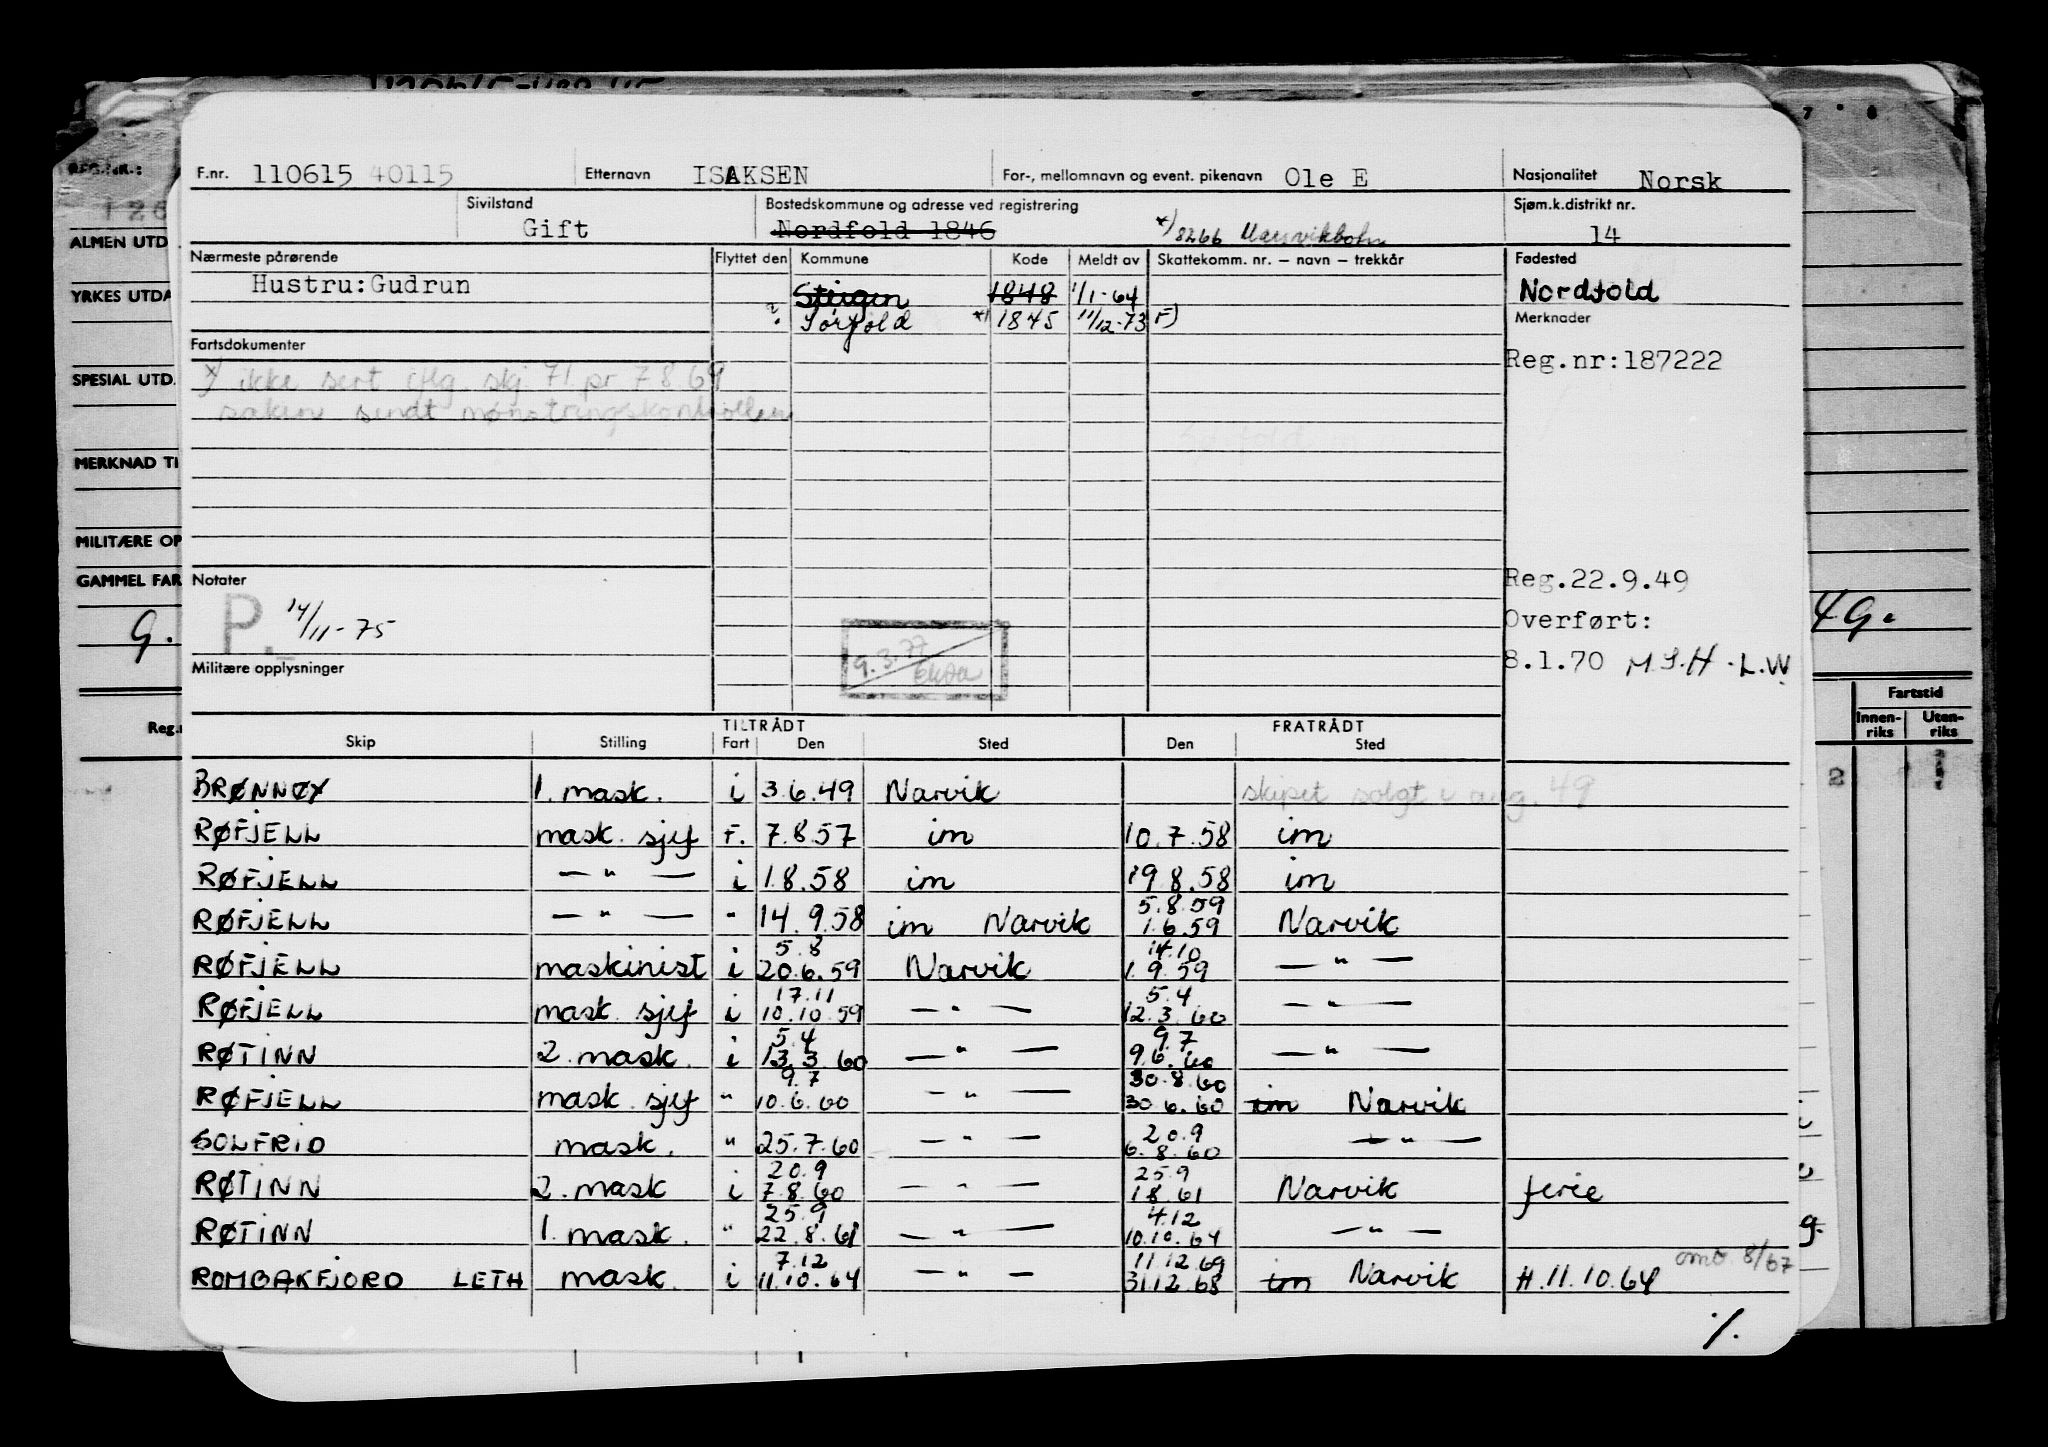 F.nr. 110615 40115 Etternavn ISAKSEN For-, mellomnavn og event. pikenavn Ole E Nasjonalitet Norsk
REG.NR.:
Sivilstand Gift Bostedskommune og adresse ved registrering Nordfold 1846 x) 8266 Sjøm.k.distrikt nr. 14
ALMEN UTD
Nærmeste pårørende Flyttet den Kommune Kode Meldt av Skattekomm. nr. – navn – trekkår Fødested
Hustru:Gudrun Steigen 1848 1/1-64 Nordfold
YRKES UTDA
? Sørfold x) 1845 11/12-73 F) Merknader
Fartsdokumenter Reg.nr:187222
SPESIAL UTD.
x) ikke sert iflg. skj 71 pr 7 8 69
saken sendt mønstringskontrollen
MERKNAD TI
MILITÆRE OP
GAMMEL FAR
Notater Reg.22.9.49
P. 14/11-75 Overført:
9. 49.
9.3.77
Militære opplysninger 8.1.70 M.S.H.-L.W
TILTRÅDT FRATRÅDT
Skip Stilling Fart Den Sted Den Sted
Fartstid
Innen-riks Uten-riks
BRØNNØY 1. mask. i 3.6.49 Narvik skipet solgt i aug. 49
RØFJELL mask. sjef F. 7.8.57 im 10.7.58 im
RØFJELL — " — i 1.8.58 im 19.8.58 im
RØFJELL — " — " 14.9.58 im Narvik 5.8.59 1.6.59 Narvik
RØFJELL maskinist i 5.8 20.6.59 Narvik 14.10 1.9.59 — " —
RØFJELL mask. sjef i 17.11 10.10.59 — " — 5.4 12.3.60 — " —
RØTINN 2. mask. i 5.4 13.3.60 — " — 9.7 9.6.60 — " —
RØFJELL mask. sjef " 9.7 10.6.60 — " — 30.8.60 30.6.60 im Narvik
SOLFRID mask. " 25.7.60 — " — 20.9 6.8.60 — " —
RØTINN 2. mask i 20.9 7.8.60 — " — 25.9 1.8.61 Narvik ferie
RØTINN 1. mask. " 25.9 22.8.61 — " — 4.12 10.10.64 — " —
ROMBAKFJORD LETH mask. i 7.12 11.10.64 — " — 11.12.69 31.12.68 im Narvik H.11.10.64 omb 8/67
./.